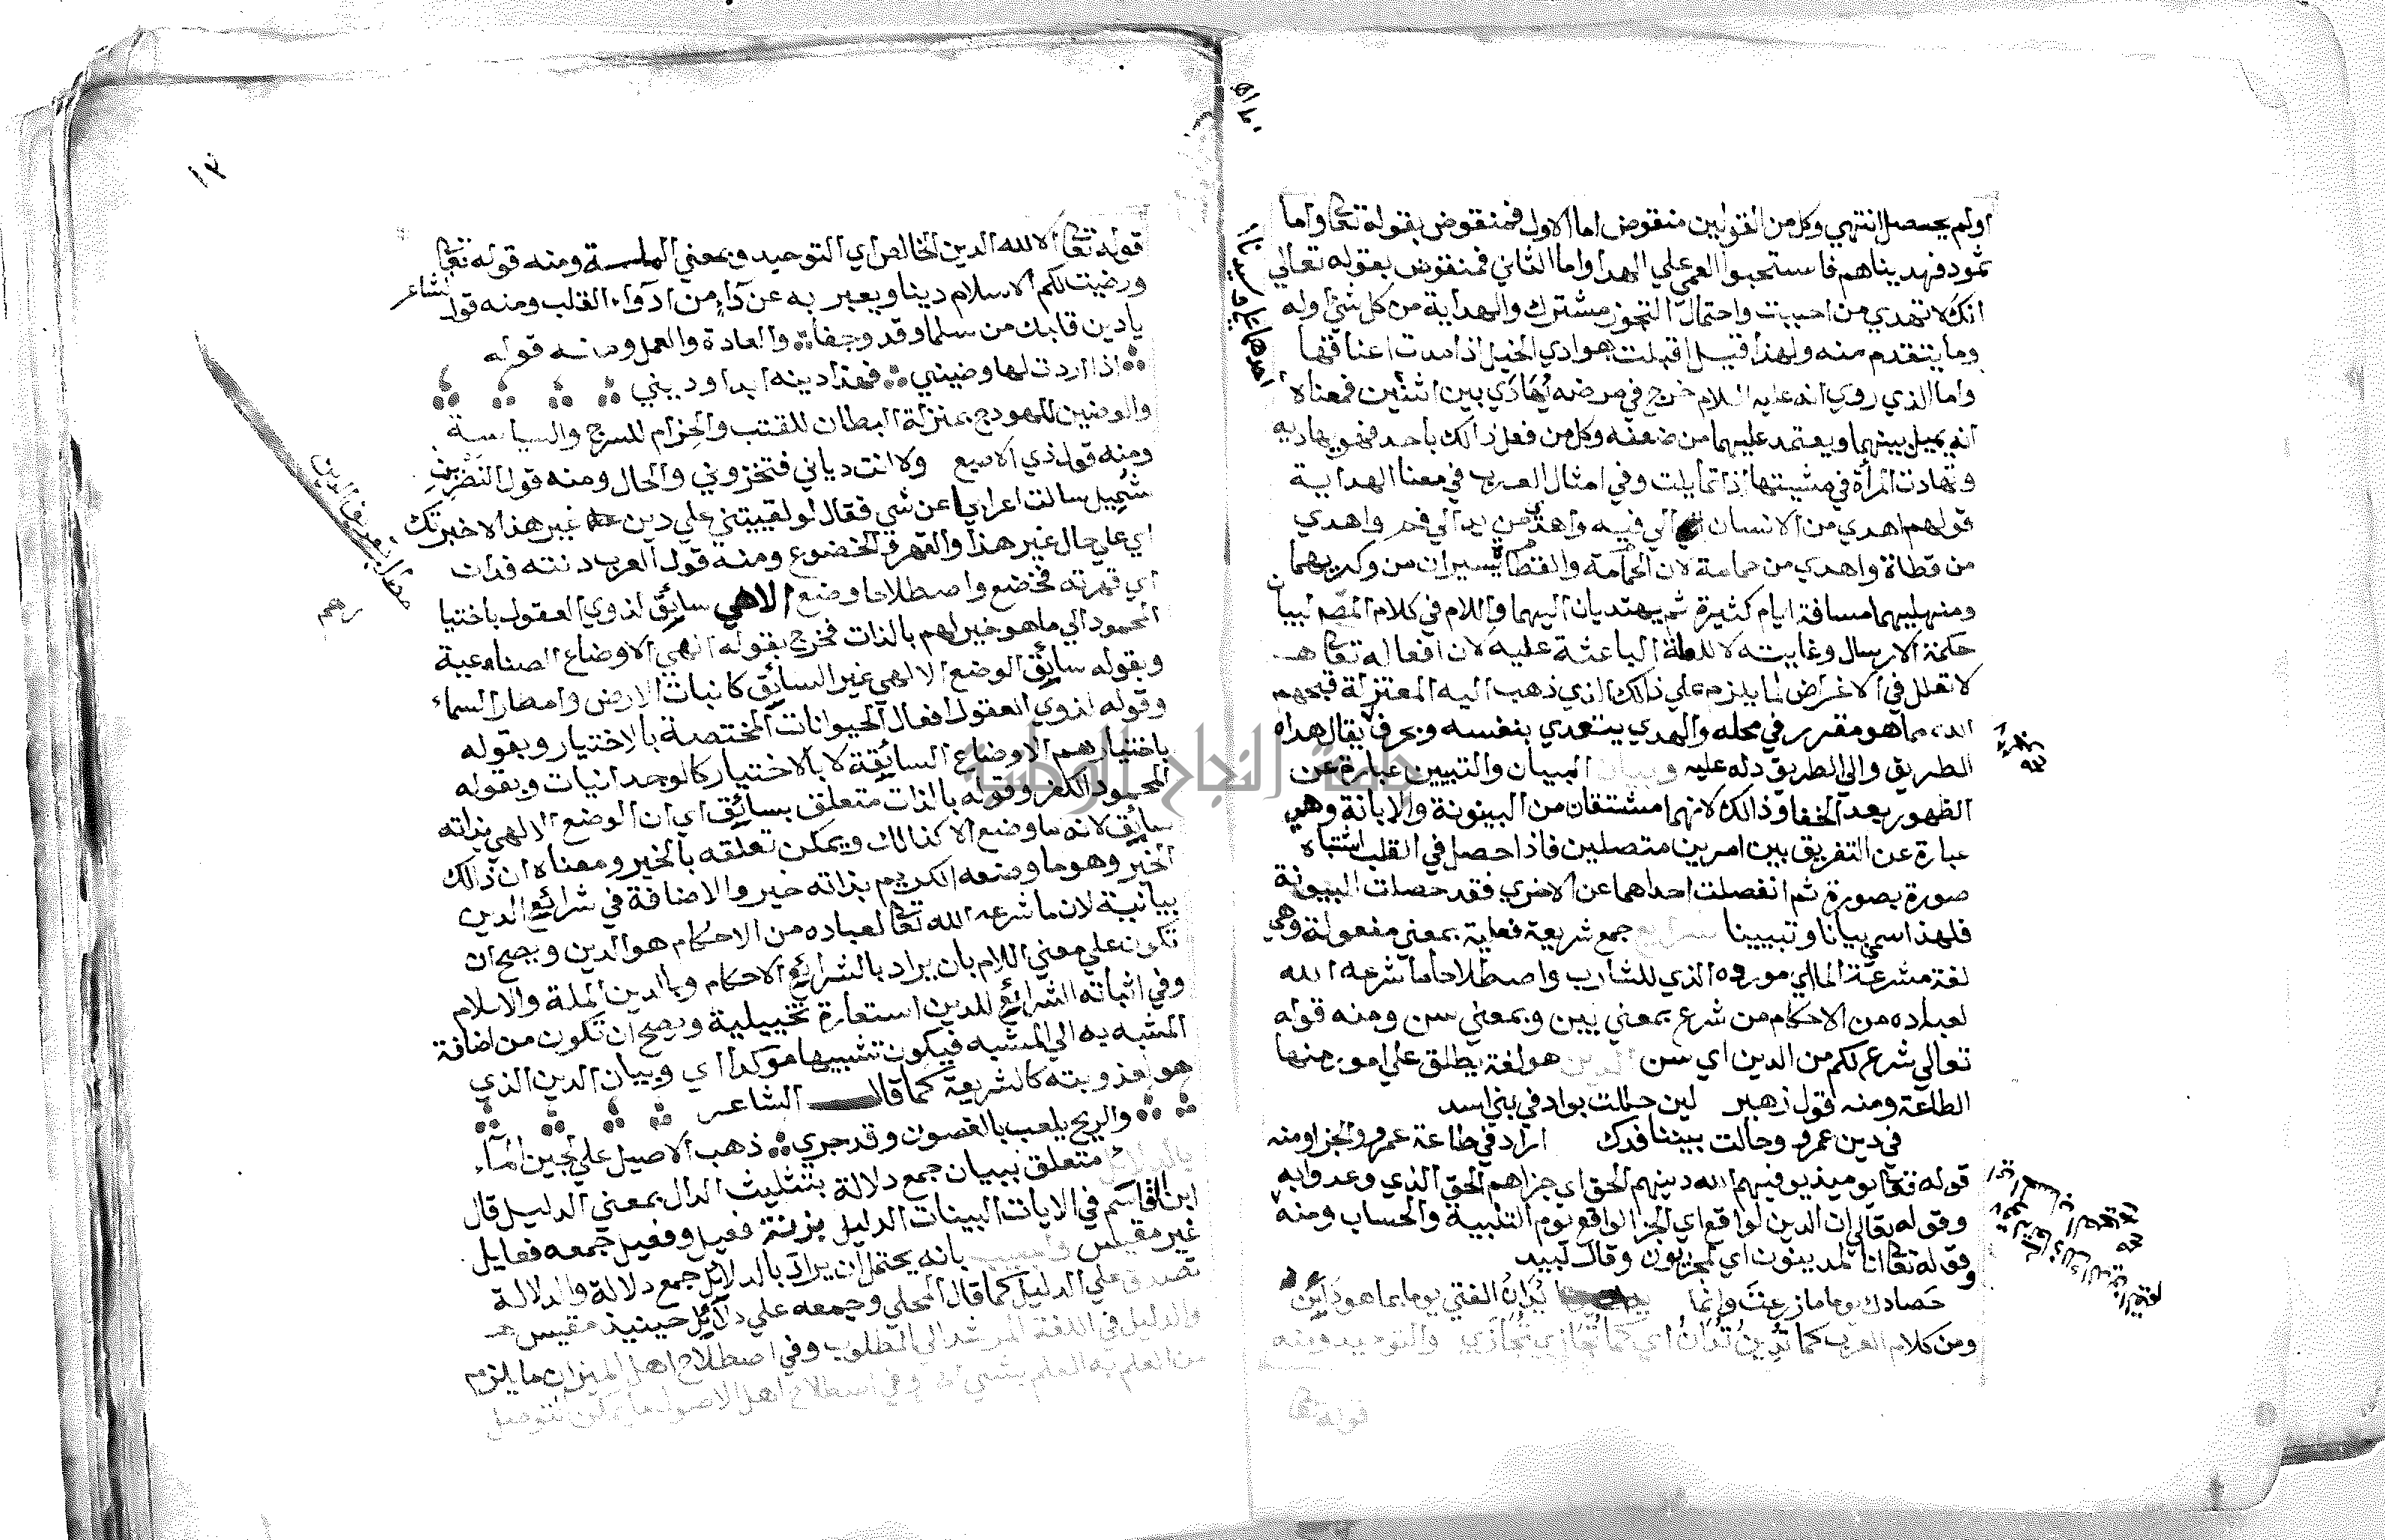 اولم يحصل انتهي وكل من القولين منقوض اما الاول فمنقوض بقوله تعا واما
ثمود فهديناهم فاستحبوا العمي علي الهدا واما الثاني فمنقوض بقوله تعالي
انك لا تهدي من احببت واحتمال التجوز مشترك والهداية من كل شئ اوله
وما يتقدم منه ولهذا قيل اقبلت هوادي الخيل اذا مدت اعناقها
واما الذي روي انه عليه السلام خرج في مرضه يُهَادَي بين اثنين فمعناه
انه يميل بينهما ويعتمد عليهما من ضعفه وكل من فعل ذالك باحد فهو يهاديه
وتهادت المرأة في مشيتها اذا تمايلت وفي امثال العرب في معنا الهداية
قولهم اهدي من الانسان الي فيه واهدي من يد الي فم واهدي
من قطاة واهدي من حمامة لان الحمامة والقطاة يسيران من وكريهما
ومنهليهما مسافة ايام كثيرة ثم يهتديان اليهما واللام في كلام المصم لبيان
حكمة الارسال وغايته لا للعلة الباعثة عليه لان افعاله تعا
لا تعلل في الاغراض لما يلزم علي ذالك الذي ذهب اليه المعتزلة قبحهم
الله مما هو مقرر في محله والهدي يتعدي بنفسه وبحرف يقال هداه
الطريق والي الطريق دله عليه وبيان البيان والتبيين عبارة عن
الظهور بعد الخفا وذالك لانهما مشتقان من البينونة والابانة وهي
عبارة عن التفريق بين امرين متصلين فاذا حصل في القلب اشتباه
صورة بصورة ثم انفصلت احداهما عن الاخري فقد حصلت البينونة
فلهذا اسمي بيانا وتبيينا شرايع جمع شريعة فعلية بمعني مفعولة وهي
لغة مشرعة الما اي مورده الذي للشارب واصطلاحا ما شرعه الله
لعباده من الاحكام من شرع بمعني بين وبمعني سن ومنه قوله
تعالي شرع لكم من الدين اي سن الدين هو لغة يطلق علي امور منها
الطاعة ومنه قول زهير لين حللت بواد في بني اسد
في دين عمرو وحالت بيننا فدك اراد في طاعة عمرو والجزا ومنه
قوله تعا يوميذ يوفيهم الله دينهم الحق اي جزاهم الحق الذي وعدوا به
وقوله تعالي ان الدين لواقع اي الجزا لواقع يوم التلبية والحساب ومنه
وقوله تعا انا لمدينون اي لمجزيون وقال لبيد
حصادك يوما ما زرعت وانما يدان الفتي يوما بما هو داين
ومن كلام العرب كما تدين تدان اي كما تجازي تجازي والتوحيد ومنه
قوله تعا
١٣
قوله تعا الا لله الدين الخالص اي التوحيد وبمعني الملة ومنه قوله تعا
ورضيت لكم الاسلام دينا ويعبر به عن داء من ادواء القلب ومنه قول الشاعر
يا دين قلبك من سلما وقد وجفا والعادة والعمل ومنه قوله
اذا اردت لها وضيني فهذا دينه ابدا وديني
والوضين للهودج بمنزلة البطان للقتب والحزام للسرج والسياسة
ومنه قول ذي الاصبع ولا انت دياني فتخزوني والحال ومنه قول النضر بن
شميل سالت اعرابيا عن شي فقال لو لقيتني علي دين غير هذا لاخبرتك
اي علي حال غير هذا والقهر والخضوع ومنه قول العرب دنته فدان
اي قهرته فخضع واصطلاحا وضع الاهي سائق لذوي العقول باختيا
المحمود الي ما هو خير لهم بالذات فخرج بقوله الهي الاوضاع الصناعية
وبقوله سائق الوضع الالهي غير السائق كانبات الارض وامطار السماء
وقوله لذوي العقول افعال الحيوانات المختصة بالاختيار وبقوله
باختيارهم الاوضاع السائقة لا بالاختيار كالوجدانيات وبقوله
المحمود الكفر وقوله بالذات متعلق بسائق اي ان الوضع الالهي بذاته
سائق لانه ما وضع الا كذالك ويمكن تعلقه بالخير ومعناه ان ذالك
الخير وهو ما وضعه الكريم بذاته خير والاضافة في شرائع الدين
بيانية لان ما شرعه الله تعا لعباده من الاحكام هو الدين ويصح ان
تكون علي معني اللام بان يراد بالشرائع الاحكام وبالدين الملة والاسلام
وفي اثباته الشرائع للدين استعارة تخييلية ويصح ان تكون من اضافة
المشبه به الي المشبه فيكون تشبيها موكدا اي وبيان الدين الذي
هو لعذوبته كالشريعة كما قال الشاعر
والريح يلعب بالغصون وقد جري ذهب الاصيل علي لجين الماء
بالدلائل متعلق ببيان جمع دلالة بتثليث الدال بمعني الدليل قال
ابن القاسم في الايات البينات الدليل بزنة فعيل وفعيل جمعه فعايل
غير مقيس واجيب بانه يحتمل ان يراد بالدلائل جمع دلالة والدلالة
تصدق علي الدليل كما قال المحلي وجمعه علي دلائل حينيذ مقيس
والدليل في اللغة المرشد الي المطلوب وفي اصطلاح اهل الميزان ما يلزم
من العلم به العلم بشي اخر وفي اصطلاح اهل الاصول ما يمكن التوصل